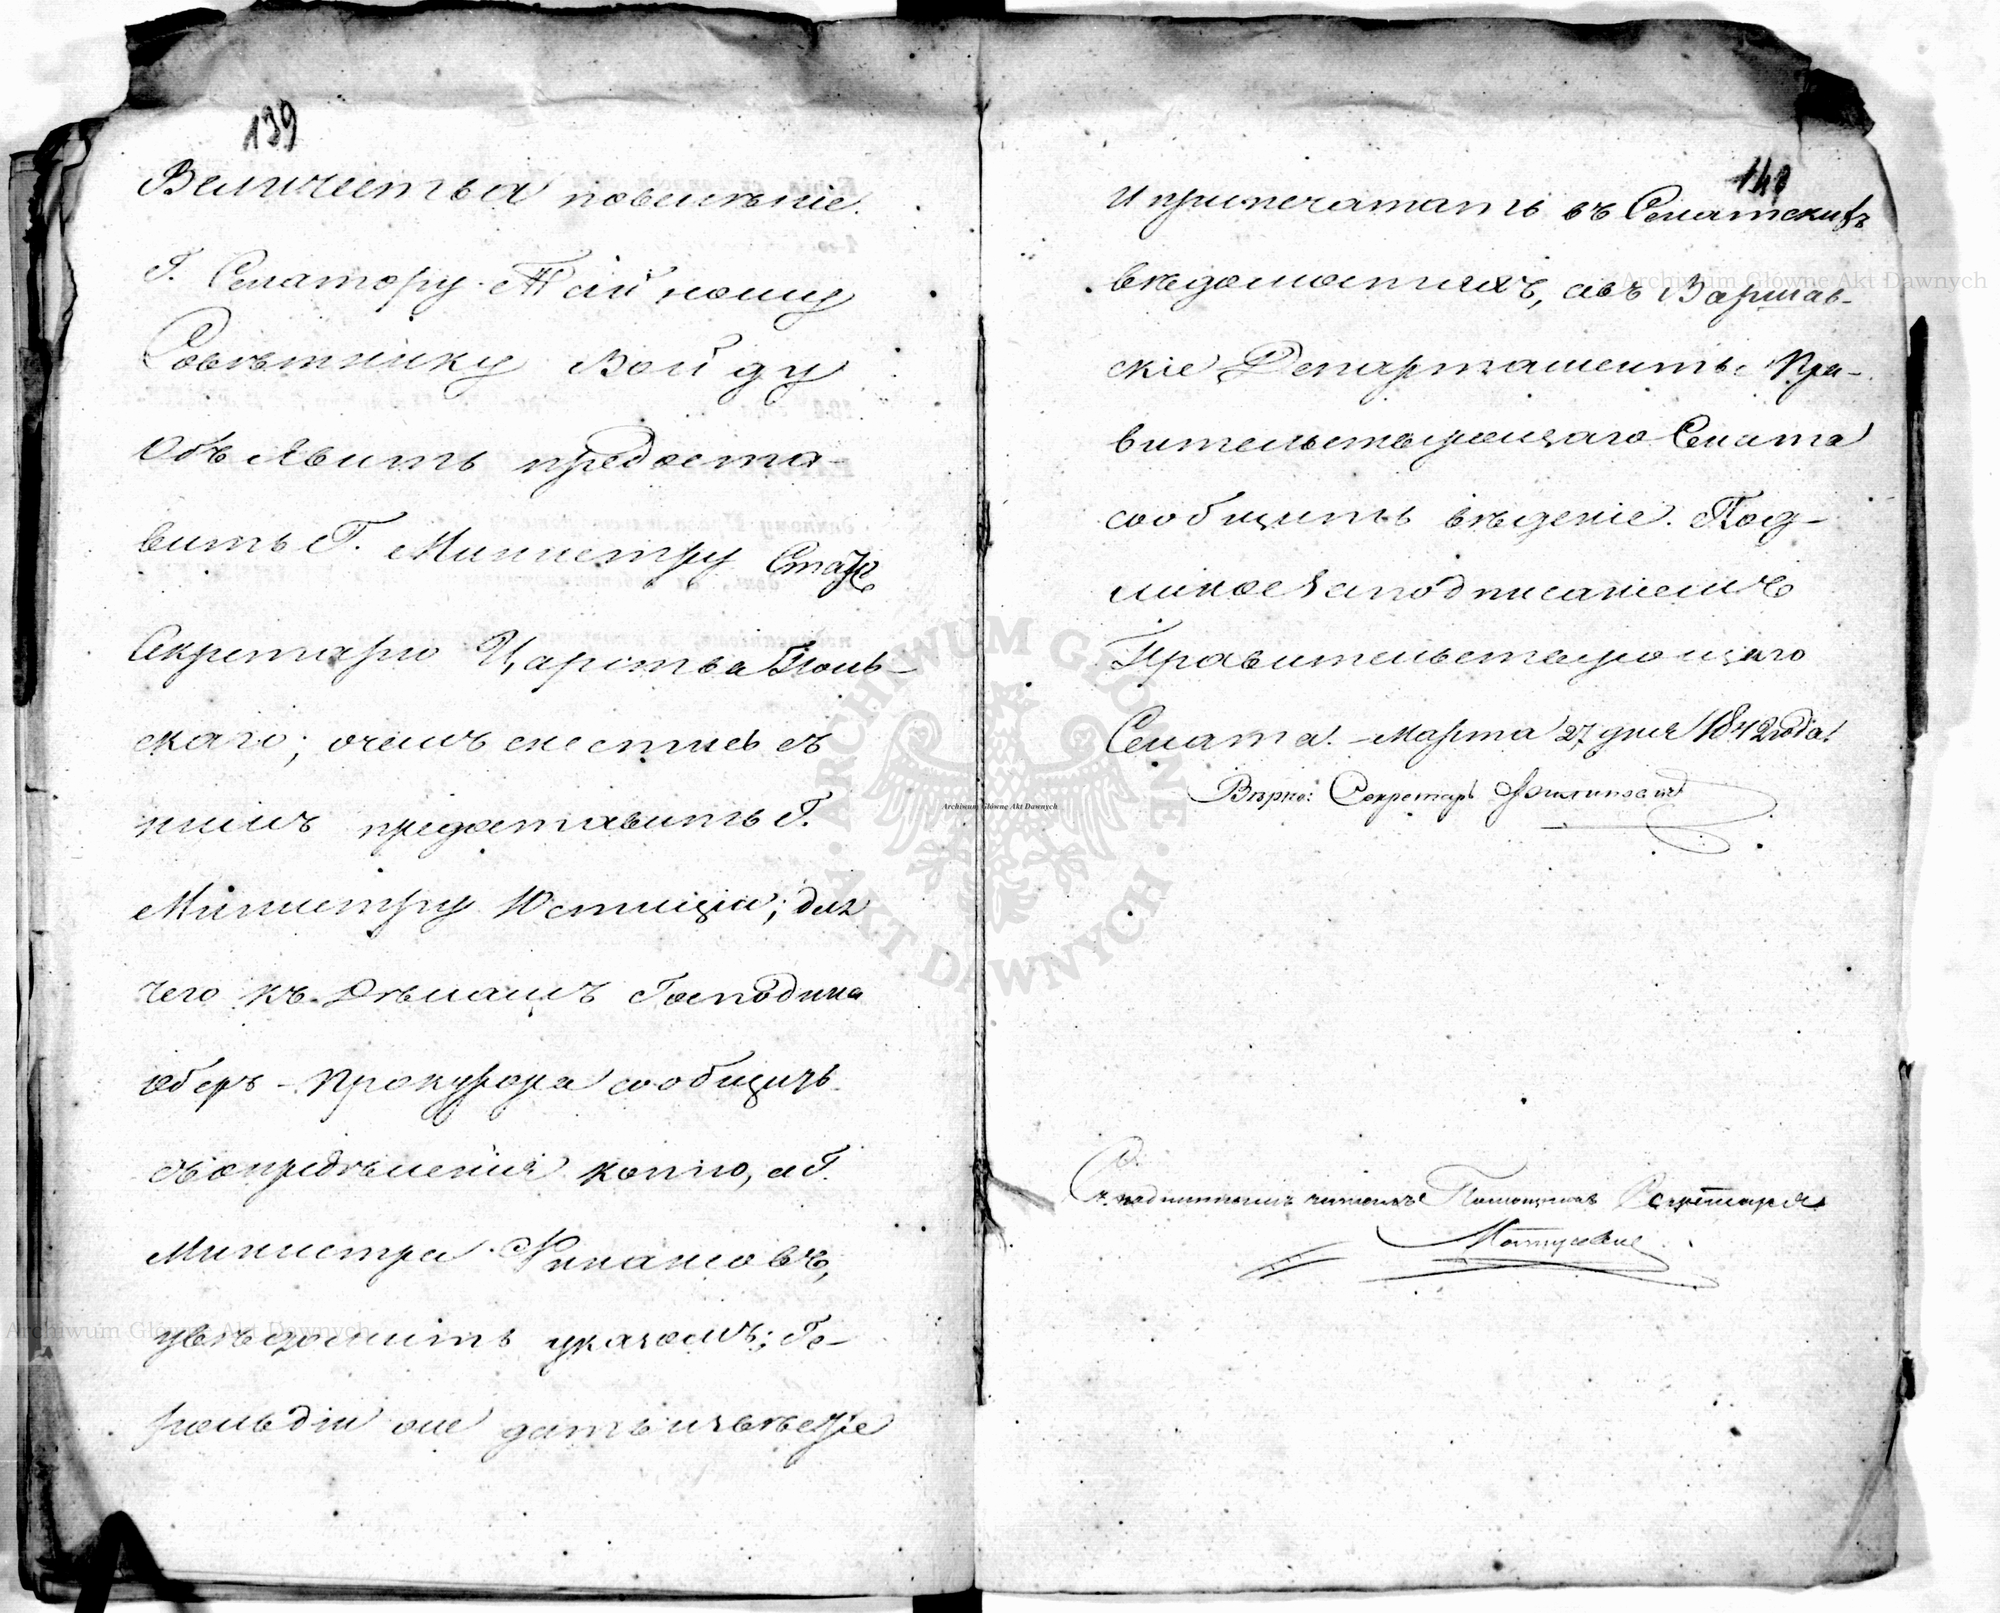 139
Величества повелѣніе.
Г. Сенатору Тайному
Совѣтнику Войду
объявить предоста-
вить Г. Министру Статсъ
Секретарю Царства Поль-
скаго; о чемъ снестись съ
нимъ предоставить Г.
Министру Юстиціи; для
чего къ Дѣламъ Господина
Оберъ-Прокурора сообщить
съ опредѣленія копію, а Г.
Министра Финансовъ,
увѣдомить указомъ; Ге-
рольдіи дать извѣстіе
140
и припечатать въ Сенатскихъ
вѣдомостяхъ, а въ Варшав-
скіе Департаменты Пра-
вительствующаго Сената
сообщить вѣденіе. Под-
линное за подписаніемъ
Правительствующаго
Сената. Марта 27 дня 1842 года.
Вѣрно: Секретарь
Съ подлиннымъ читалъ Помощникъ Секретаря
Archiwum Główne Akt Dawnych
Archiwum Główne Akt Dawnych
Archiwum Główne Akt Dawnych
ARCHIWUM GŁÓWNE AKT DAWNYCH